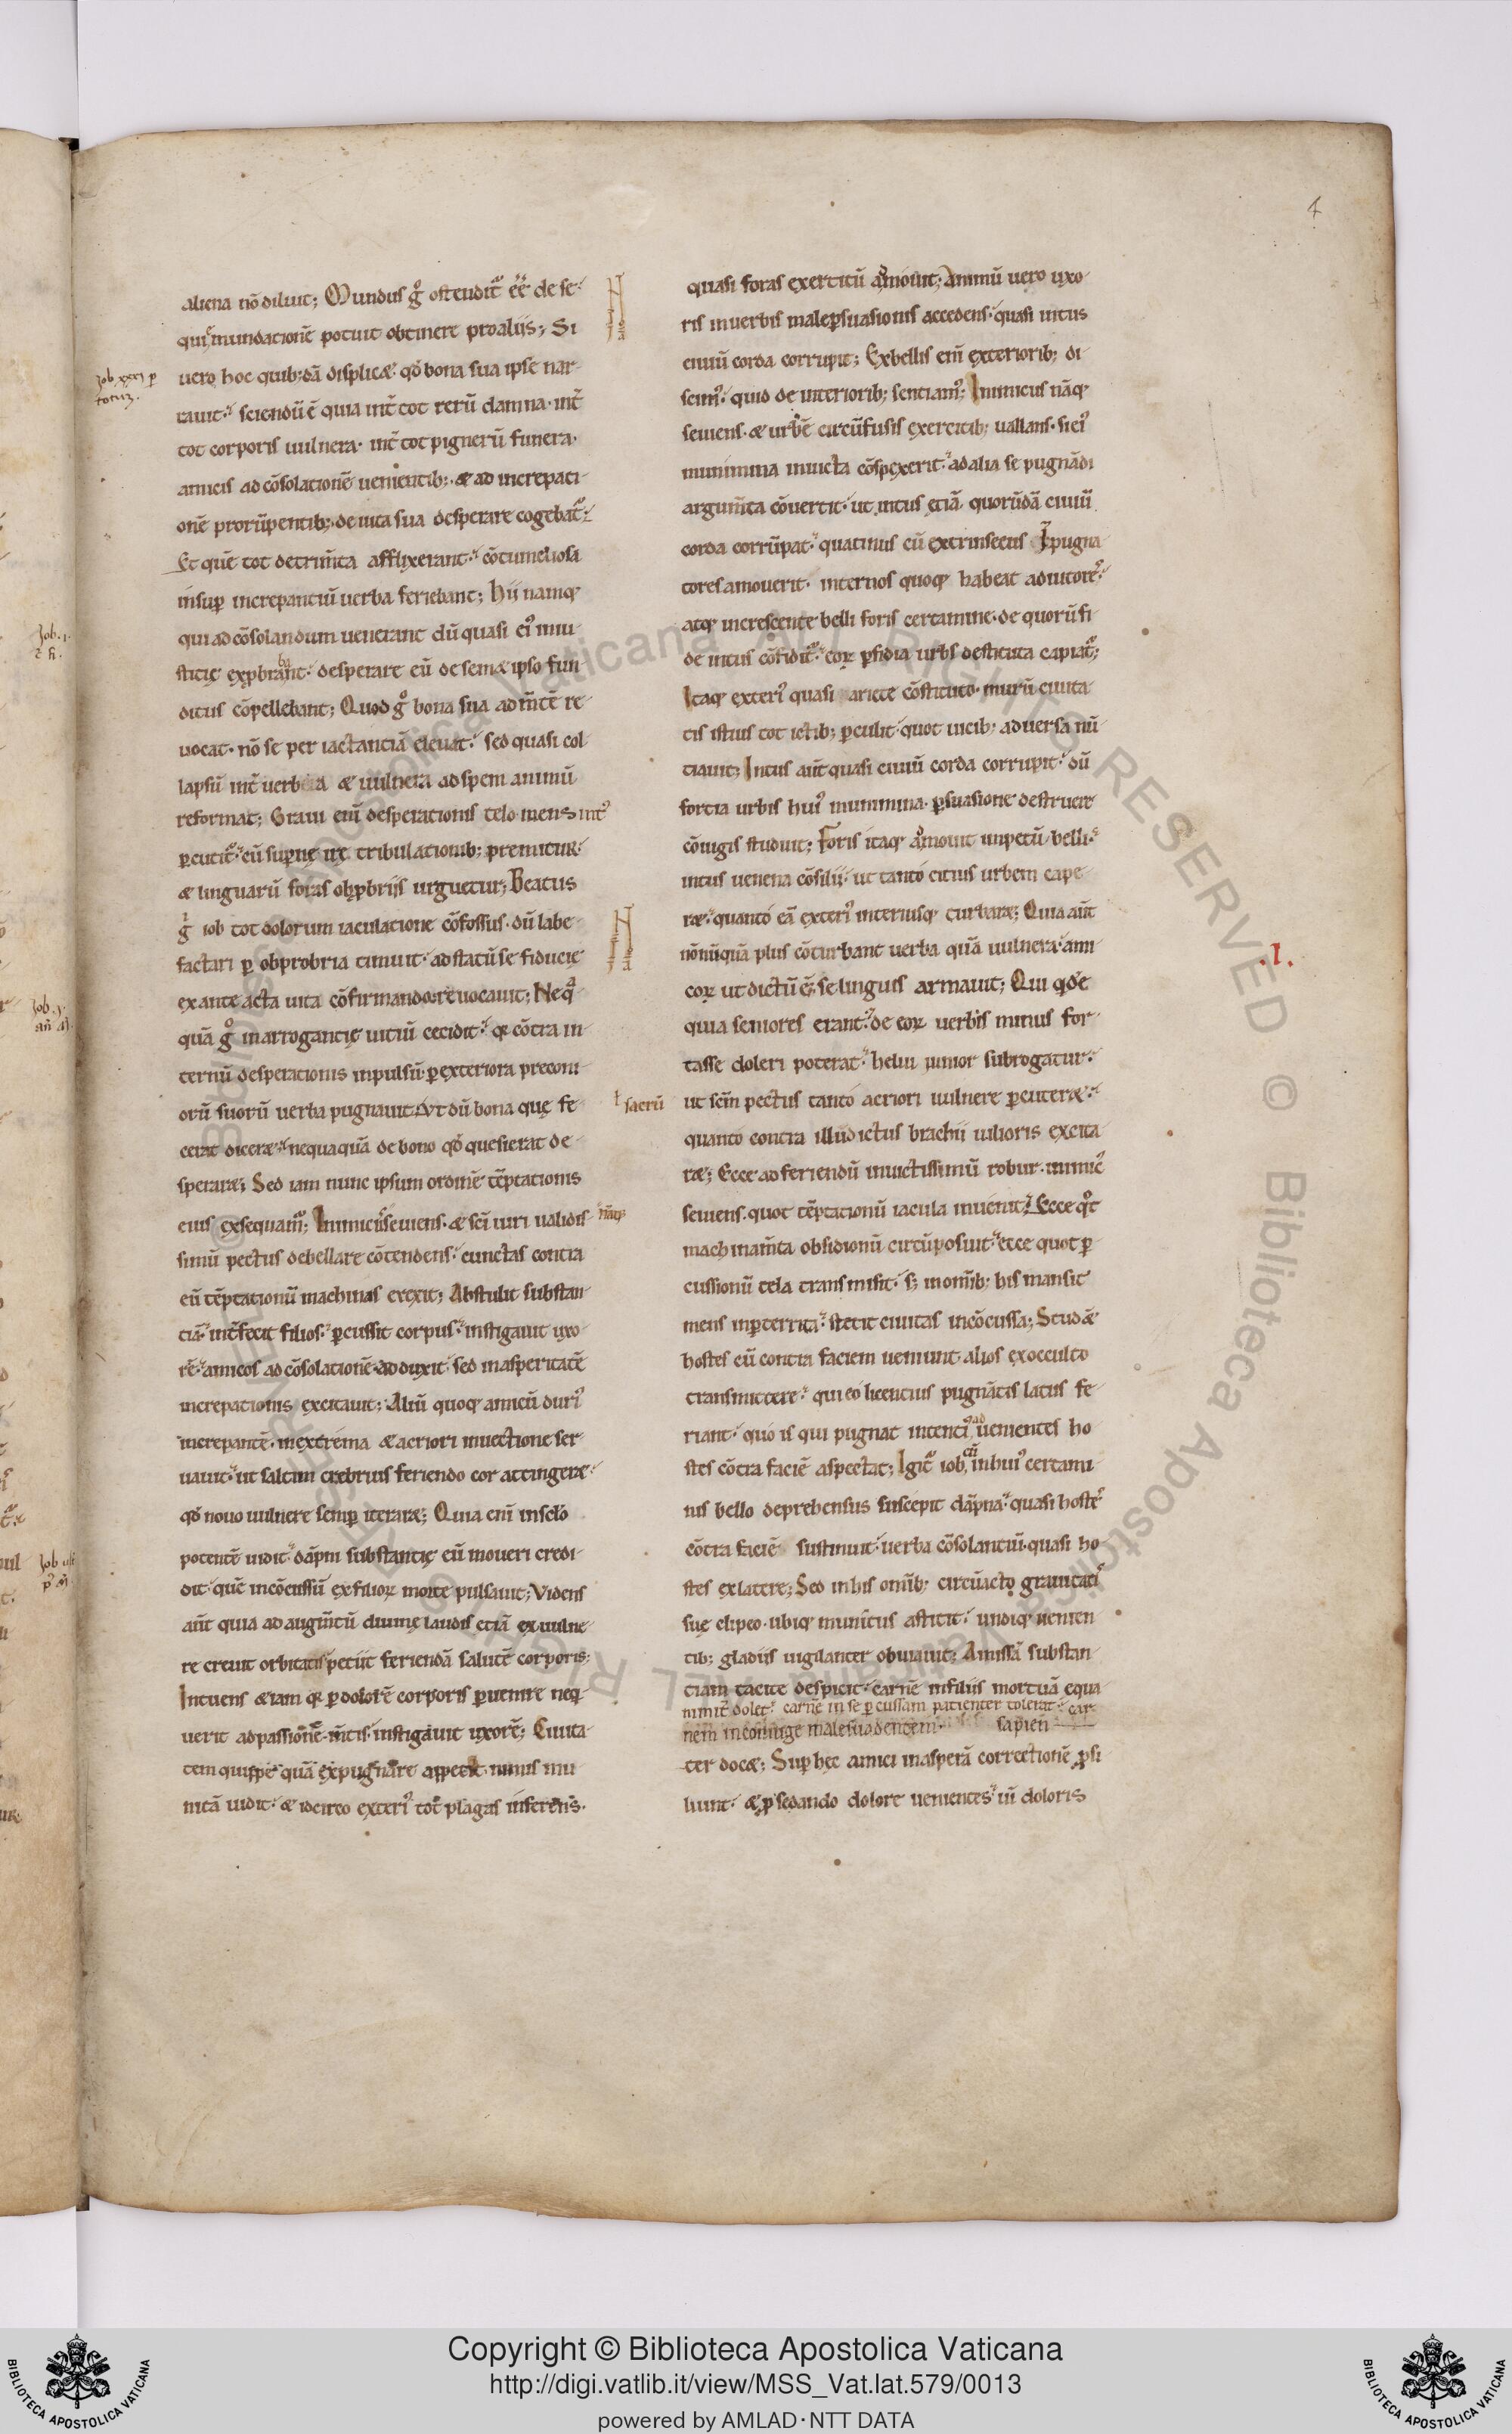 4
aliena nō diluit; Mundus gͦ ostendit᷑ eē de se
qui mundationē potuit obtinere pro aliis; Si
uero hoc quib;dā displicæ· qđ bona sua ipse nar
rauit· sciendū ē quia int̄ tot rerū damna· int̄
tot corporis uulnera· int̄ tot pignerū funera·
amicis ad cōsolationē uenientib;· & ad increpati
onē prorūpentib;· de uita sua desperare cogebat᷑·
Et quē tot detrim̄ta afflixerant· cōtumeliosa
insup̱ increpantiū uerba feriebant; Hii namq;
qui ad cōsolandum uenerant dū quasi eiꝰ iniu
stitię exꝓbrabant· desperare eū de semæ ipso fun
ditus cōpellebant; Quod gͦ bona sua ad m̄tē re
uocat· nō se per iactantiā eleuat· sed quasi col
lapsū int̄ uerba & uulnera ad spem animū
reformat; Graui eni̅ desperationis telo mens
ꝑcutit᷑· cū supernę irę tribulationib; premitur·
& linguarū foras obꝓbriis urguetur; Beatus
g̊ iob tot dolorum iaculatione cōfossus· dū labe
factari ꝑ obprobria timuit· ad statū se fiducię
ex ante acta uita cōfirmando reuocauit; Neq̅
quā gͦ in arrogantię uitiū cecidit· q̨ cōtra in
ternū desperationis inpulsū ꝑ exteriora preconi
orū suorū uerba pugnauit· Vt dū bona quę fe
cerat diceræ· nequaquā de bono qđ quesierat de
speraræ; Sed iam nunc ipsum ordinē tēptationis
eius exsequam᷑; Inimicꝰ seuiens· & sc̄i uiri ualidis
simū pectus debellare cōtendens· cunctas contra
eū tēptationū machinas erexit; Abstulit substan
tiā· int̄fecit filios· ꝑcussit corpus· instigauit uxo
rē· amicos ad cōsolationē adduxit· sed in asperitatē
increpationis excitauit; Aliū quoq; amicū duriꝰ
increpantē· in extrema & acriori inuectione ser
uauit· ut saltim crebrius feriendo cor attingeræ·
qđ nouo uulnere semp̱ iteraræ; Quia eni̅ in sc̄lo
potentē uidit· dāpni substantię eū moueri credi
dit· quē incōcussū ex filioꝝ morte pulsauit; Videns
aūt quia ad augm̄tū diuinę laudis etiā ex uulne
re creuit orbitatis· petiit feriendā salutē corporis;
Intuens &iam q̨ ꝑ dolorē corporis ꝑuenire neq̅
uerit ad passionē m̄tis· instigauit uxorē; Ciuita
tem quippe quā expugnare appetit· nimis mu
nitā uidit· & idcirco exteriꝰ tot plagas inferens·
quasi foras exercitū ām̊ouit; Animū uero uxo
ris in uerbis male ꝑsuasionis accedens· quasi intus
ciuiū corda corrupit; Ex bellis eni̅ exteriorib; di
scimꝰ· quid de interiorib; sentiamꝰ; Inimicus nāq;
seuiens· & urbē circūfusis exercitib; uallans· si eiꝰ
munimina inuicta cōspexerit· ad alia se pugnādi
argum̄ta cōuertit· ut intus etiā quorūdā ciuiū
corda corrūpat· quatinus cū extrinsecus īpugna
tores amouerit· internos quoq; habeat adiutores·
atq; increscente belli foris certamine· de quorū fi
de intus cōfidit᷑· eoꝝ ꝑfidia urbs destituta capiat᷑;
Itaq; exteriꝰ quasi ariete cōstituto· murū ciuita
tis istius tot ictib; ꝑculit· quot uicib; aduersa nū
tiauit; Intus aūt quasi ciuiū corda corrupit· dū
fortia urbis huiꝰ munimina· ꝑsuasione destruere
cōiugis studuit; Foris itaq; ām̊ouit impetū belli·
intus uenena cōsilii· ut tanto citius urbem cape
ræ· quanto eā exteriꝰ interiusq; turbaræ; Quia aūt
nōnūquā plus cōturbant uerba quā uulnera· ami
coꝝ ut dictū ē· se linguis armauit; Qui qđē
quia seniores erant· de eoꝝ uerbis minus for
tasse doleri poterat· heliu iunior subrogatur·
ut sc̄m pectus tanto acriori uulnere ꝑcuteræ·
quanto contra illud ictus brachii uilioris excita
ræ; Ecce ad feriendū inuictissimū robur· inimicꝰ
seuiens· quot tēptationū iacula inuenit· Ecce q̊t
machinam̄ta obsidionū circūposuit· ecce quot ꝑ
cussionū tela transmisit· s; in om̄ib; his mansit
mens inꝑterrita· stetit ciuitas incōcussa; Studæ̅
hostes cū contra faciem ueniunt· alios ex occulto
transmittere· qui eo licentius pugnātis latus fe
riant· quo is qui pugnat intentiꝰ uenientes ho
stes cōtra faciē aspectat; Igit᷑ iob in huiꝰ certami
nis bello deprehensus suscepit dāpna· quasi hostes
cōtra faciē sustinuit· uerba cōsolantiū· quasi ho
stes ex latere; Sed in his om̄ib; circūacto grauitatis
suę clipeo· ubiq; munitus astitit· undiq; uenien
tib; gladiis uigilanter obuiauit; Amissā substan
tiam tacite despicit· carnē in filiis mortuā equa
nimit̄ dolet· carnē in se ꝑcussam patienter tolerat· car
nem in coniuge male suadentem sapien
ter docæ; Sup̱ hęc amici in asperā correctionē ꝓsi
liunt· & ꝓ sedando dolore uenientes· uī doloris
Job xxxi ꝑ
totuꝫ.
ł sacrū
nāq;
.I.
Copyright © Biblioteca Apostolica Vaticana
http://digi.vatlib.it/view/MSS_Vat.lat.579/0013
powered by AMLAD·NTT DATA
BIBLIOTECA APOSTOLICA VATICANA
BIBLIOTECA APOSTOLICA VATICANA